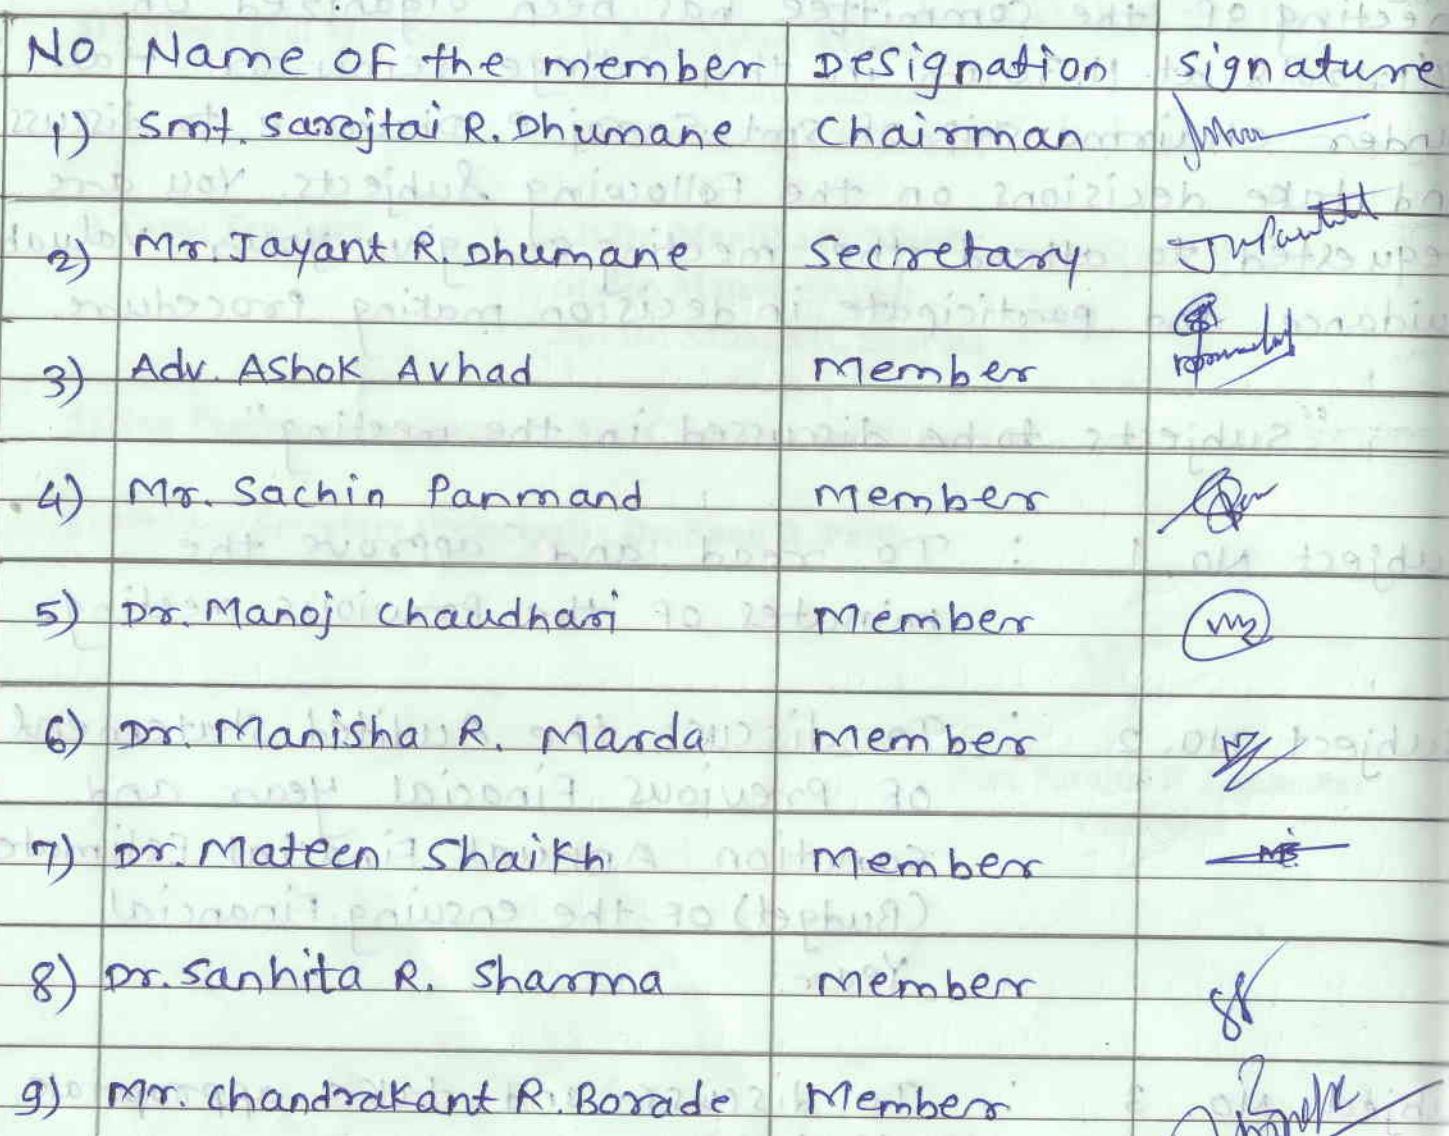 No Name of the member Designation signature
1) Smt. Sarojtai R. Dhumane Chairman
2) Mr. Jayant R. Dhumane Secretary
3) Adv. Ashok Avhad Member
4) Mr. Sachin Panmand Member
5) Dr. Manoj Chaudhari Member
6) Dr. Manisha R. Marda Member
7) Dr. Mateen Shaikh Member
8) Dr. Sanhita R. Sharma Member
9) Mr. Chandrakant R. Borade Member